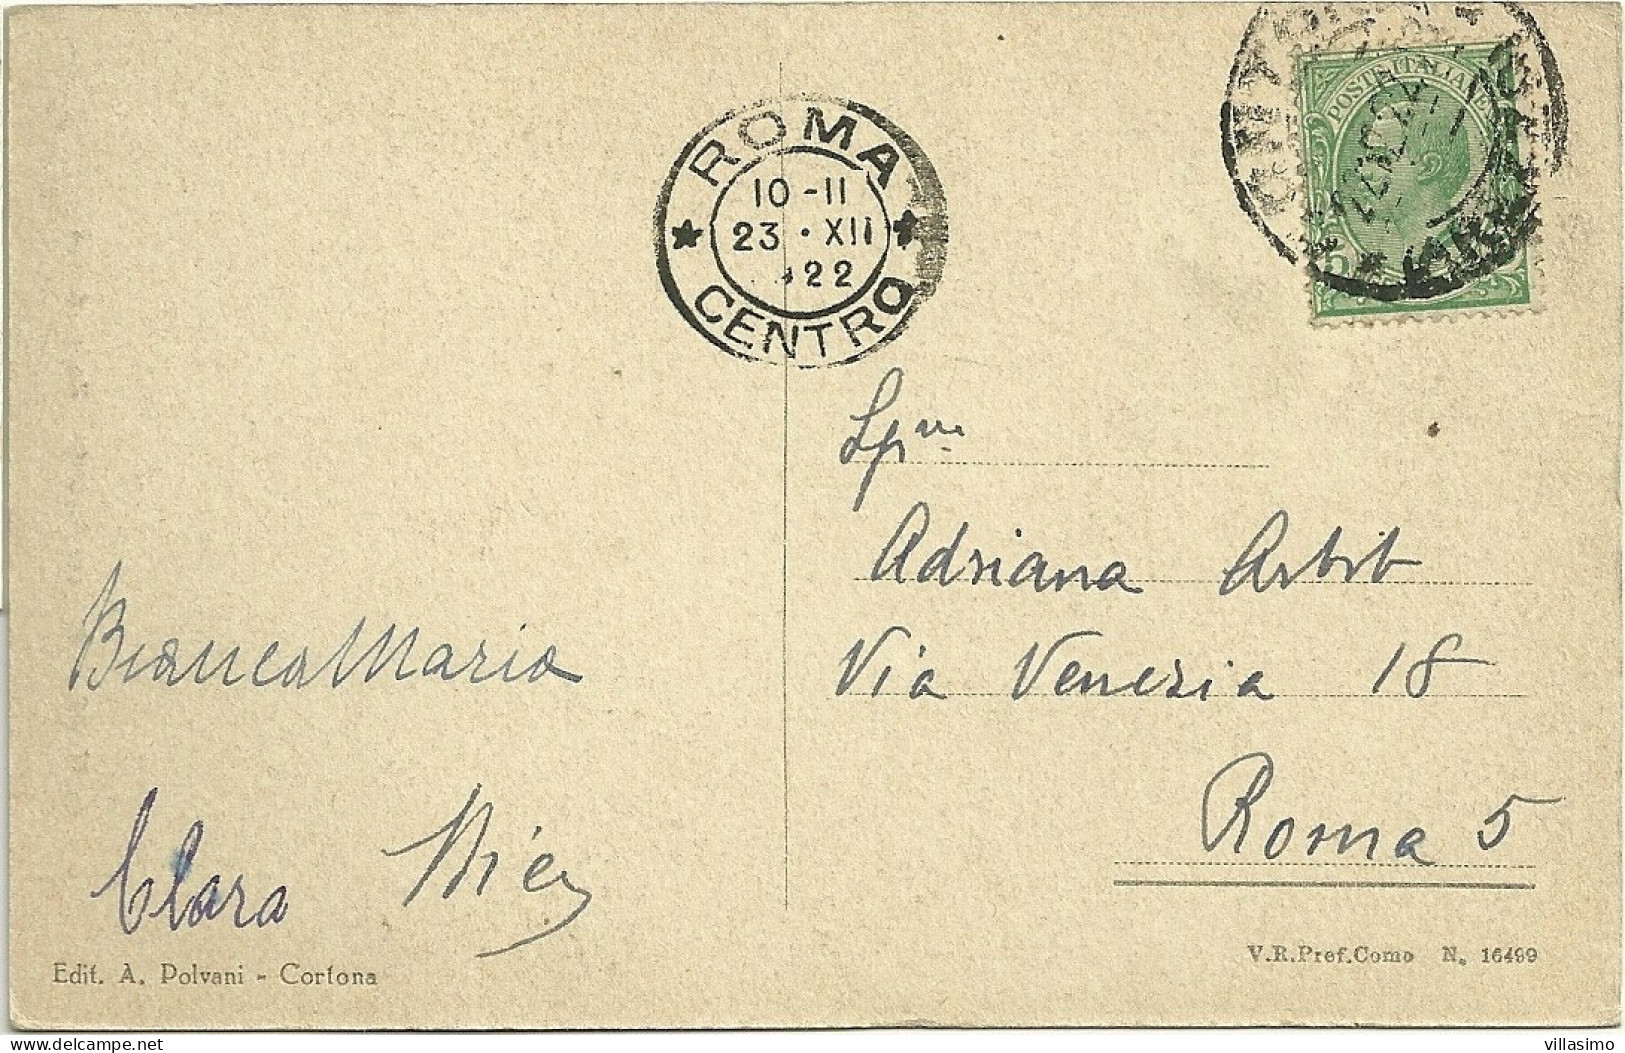 ROMA
10-11
23 · XII
22
CENTRO
POSTE ITALIANE
5
Adriana
Via Venezia 18
Roma 5
BiancaMaria
Clara
Edit. A. Polvani - Cortona
V.R.Pref.Como N. 16499
delcampe.net
villasimo